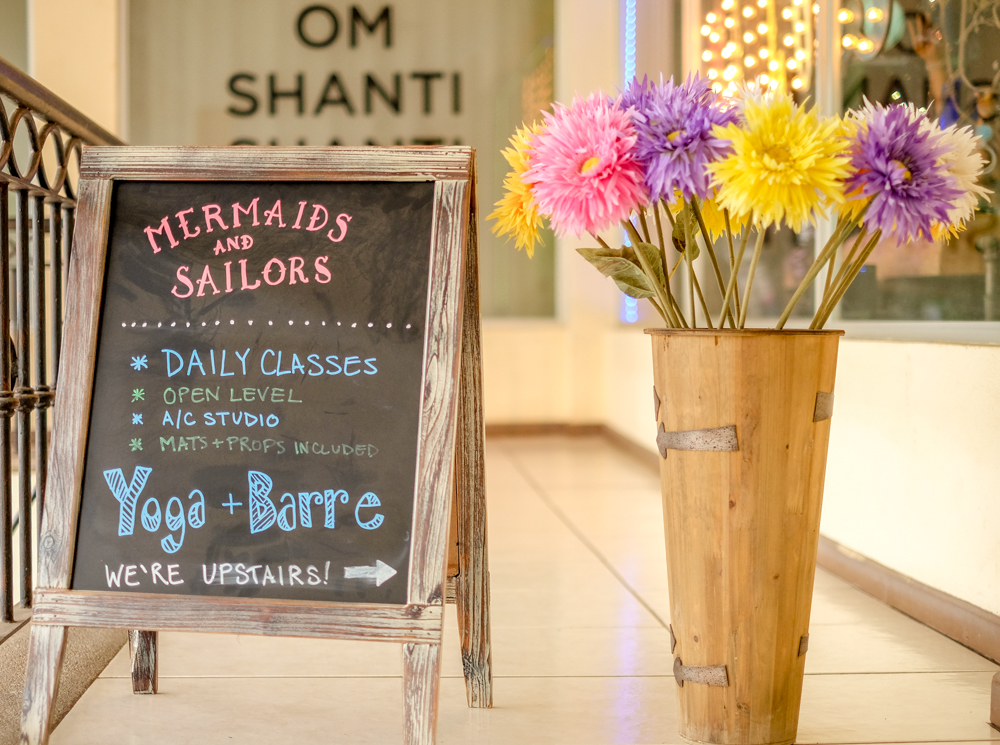 OM
SHANTI
SHANTI
MERMAIDS
AND
SAILORS
* DAILY CLASSES
* OPEN LEVEL
* A/C STUDIO
* MATS + PROPS INCLUDED
Yoga + Barre
WE'RE UPSTAIRS!